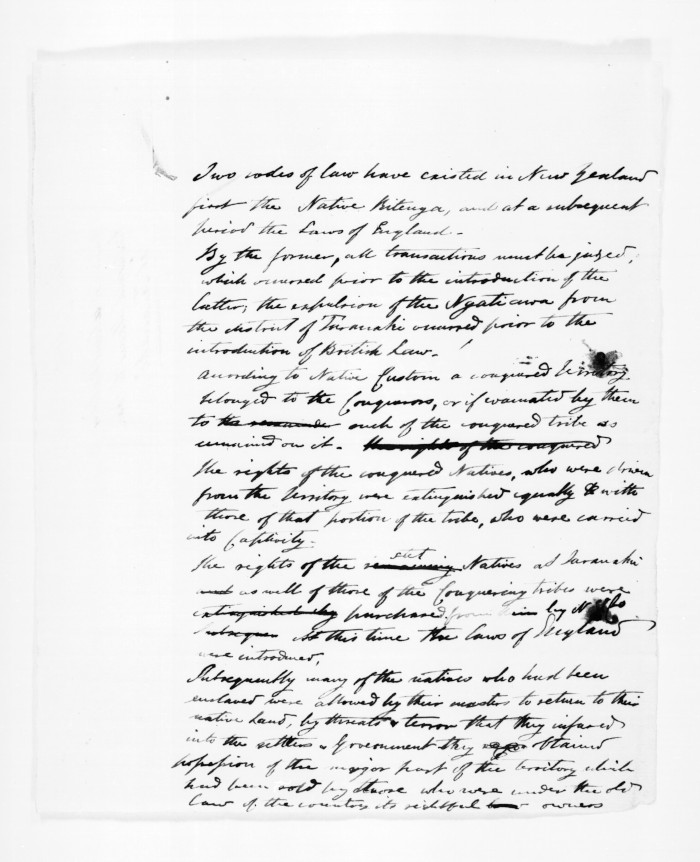 Two codes of law have existed in New Zealand
first the Native Ritenga, and at a subsequent
period the Laws of England -
By the former, all transactions must be juged,
which occurred prior to the introduction of the
latter; the expulsion of the Ngatiawa from
the district of Taranaki occurred prior to the
introduction of British Law. -
According to Native Custom a conquered Territory
belonged to the Conquerors, or if evacuated by them
to the remainder such of the conquered tribe as
remained on it - the rights of the conquered
The rights of the conquered Natives, who were driven
from the Territory were extinguished equally & with
those of that portion of the tribe, who were carried
into Captivity -
stet
The rights of the remaining Natives at Taranaki
and as well of those of the Conquering tribes were
extinguished by purchased from by
subsequen At this time the Laws of England
were introduced,
Subsequently many of the natives who had been
enslaved were allowed by their masters to return to their
native Land, by threats & terror that they infused
into the settlers & Government they obtained
possession of the major part of the territory which
had been sold by those who were under the old
Law of the country its rightful owners